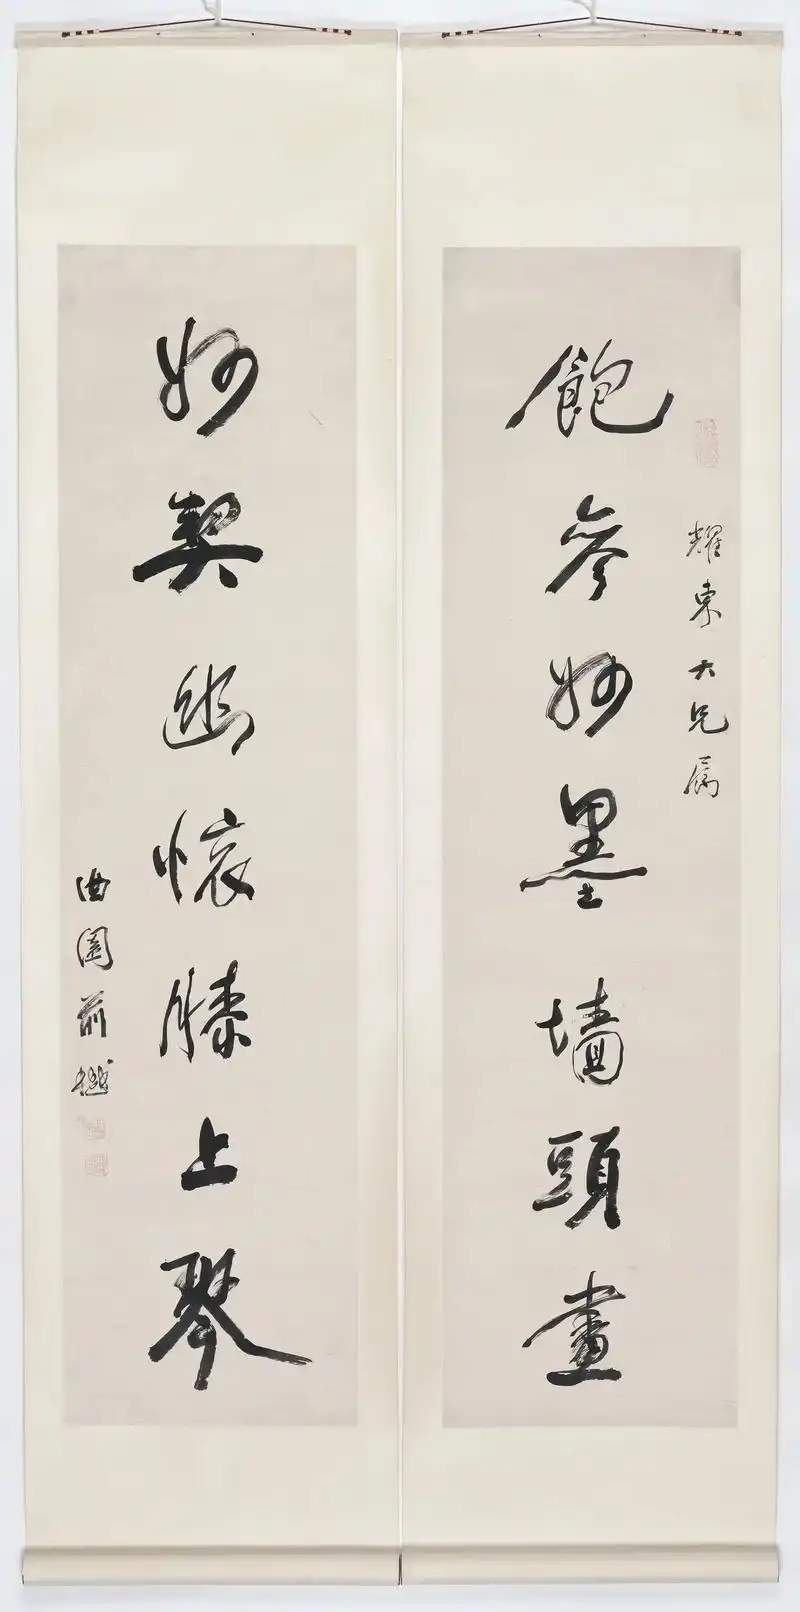 耀東大兄屬
飽參妙墨墻頭畫
妙契幽懷膝上琴
曲園俞樾